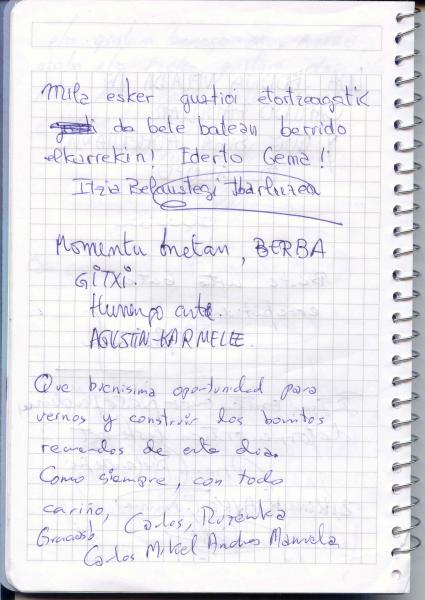 Mila esker guztioi etortzeagatik
da bete batean berrido
elkarrekin! Ederto Gema!
Itzia Belaustegi Ibarluzea
Momentu onetan, BERBA
GITXI.
Hurrengo arte.
AGUSTIN-KARMELE
Que buenisima oportunidad para
vernos y construir los bonitos
recuerdos de este dia.
Como siempre, con todo
cariño, Carlos, Ruzenka
Gracias Carlos Mikel Andres Manuela